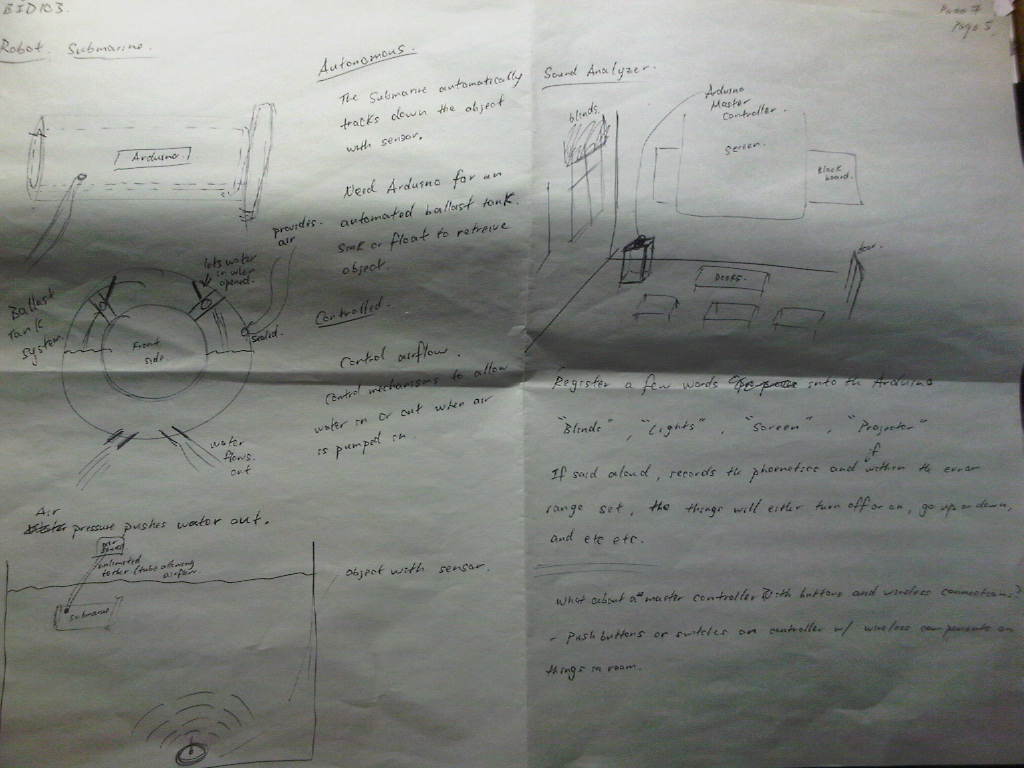 BID103.
Page 7
Page 5
Robot Submarine.
Arduino.
Ballast
Tank
System.
Front
side
lets water
in when
opened.
provides
air
Sealed.
water
flows
out
Air
pressure pushes water out.
unlimited
tether (tube allowing
airflow
Submarine
object with sensor.
Autonomous.
The Submarine automatically
tracks down the object
with sensor.
Need Arduino for an
automated ballast tank.
Sink or float to retreive
object.
Controlled.
Control airflow.
Control mechanisms to allow
water in or out when air
is pumped in.
Sound Analyzer.
blinds.
Arduino
Master
Controller.
Screen.
Black
board.
door.
Desks.
Register a few words into the Arduino
"Blinds", "Lights", "Screen", "Projector"
If said aloud, records the phonetics and if within the error
range set, the things will either turn off or on, go up or down,
and etc etc.
What about a master controller with buttons and wireless connections?
- Push buttons or switches on controller w/ wireless components on
things in room.